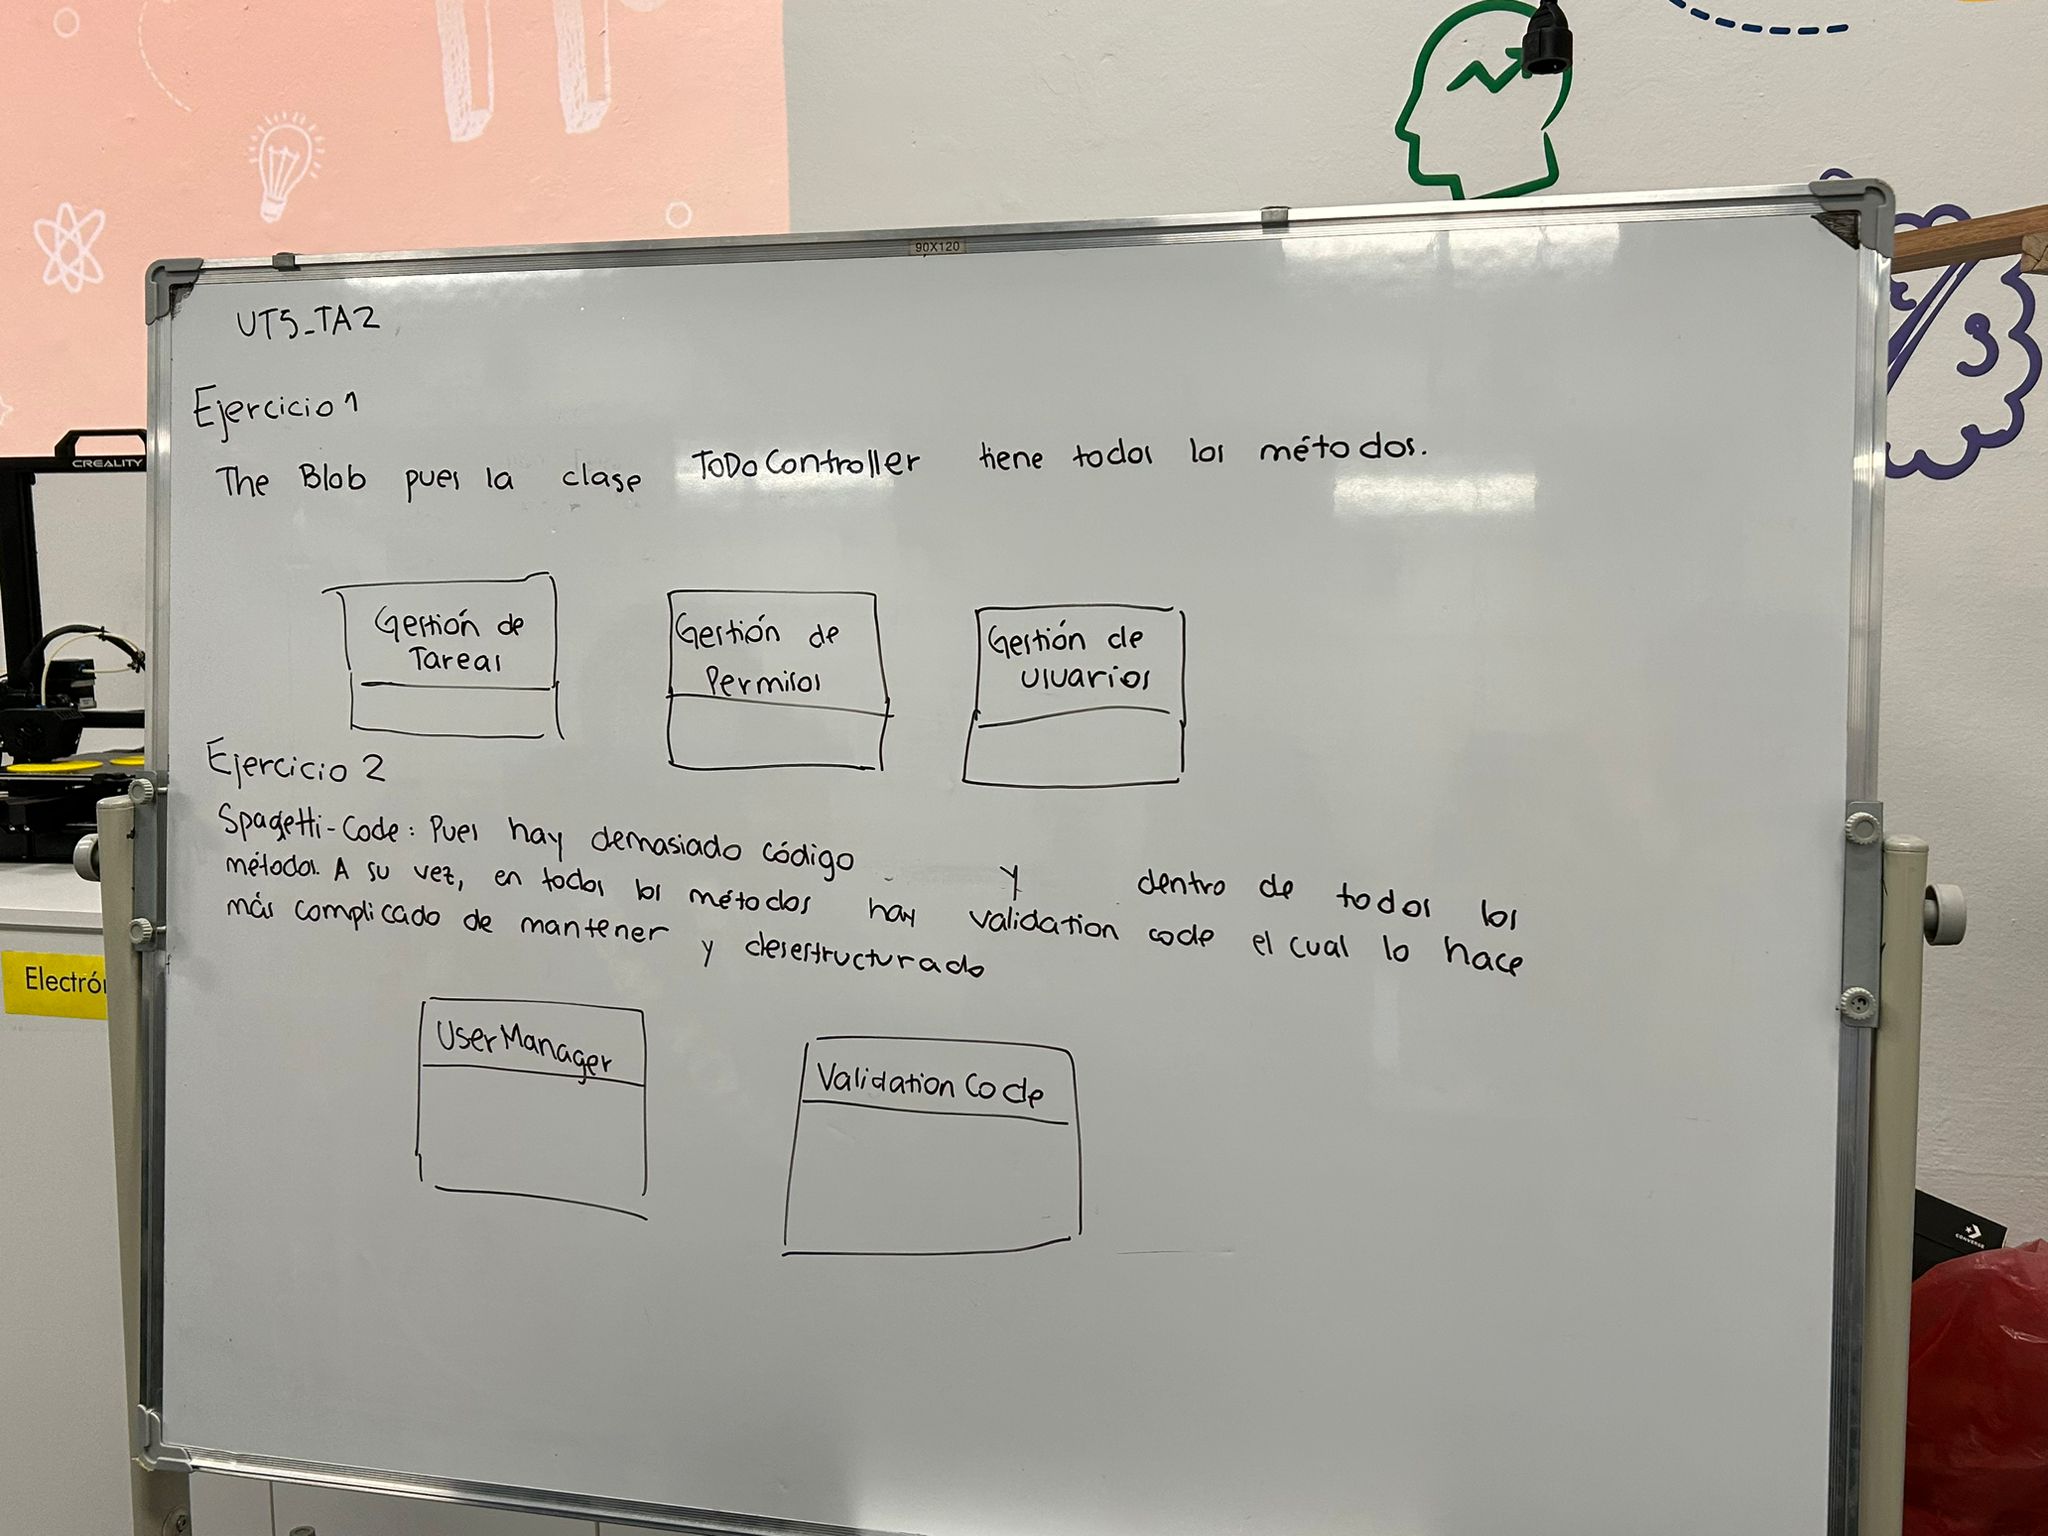 90X120
CREALITY
UT5_TA2
Ejercicio 1
The Blob pues la clase ToDoController tiene todos los métodos.
Gestión de
Tareas
Gestión de
Permisos
Gestión de
usuarios
Ejercicio 2
Spagetti-Code: Pues hay demasiado código y dentro de todos los
métodos. A su vez, en todos los métodos hay validation code el cual lo hace
más complicado de mantener y desestructurado
Electró
UserManager
Validation Code
CONVERSE